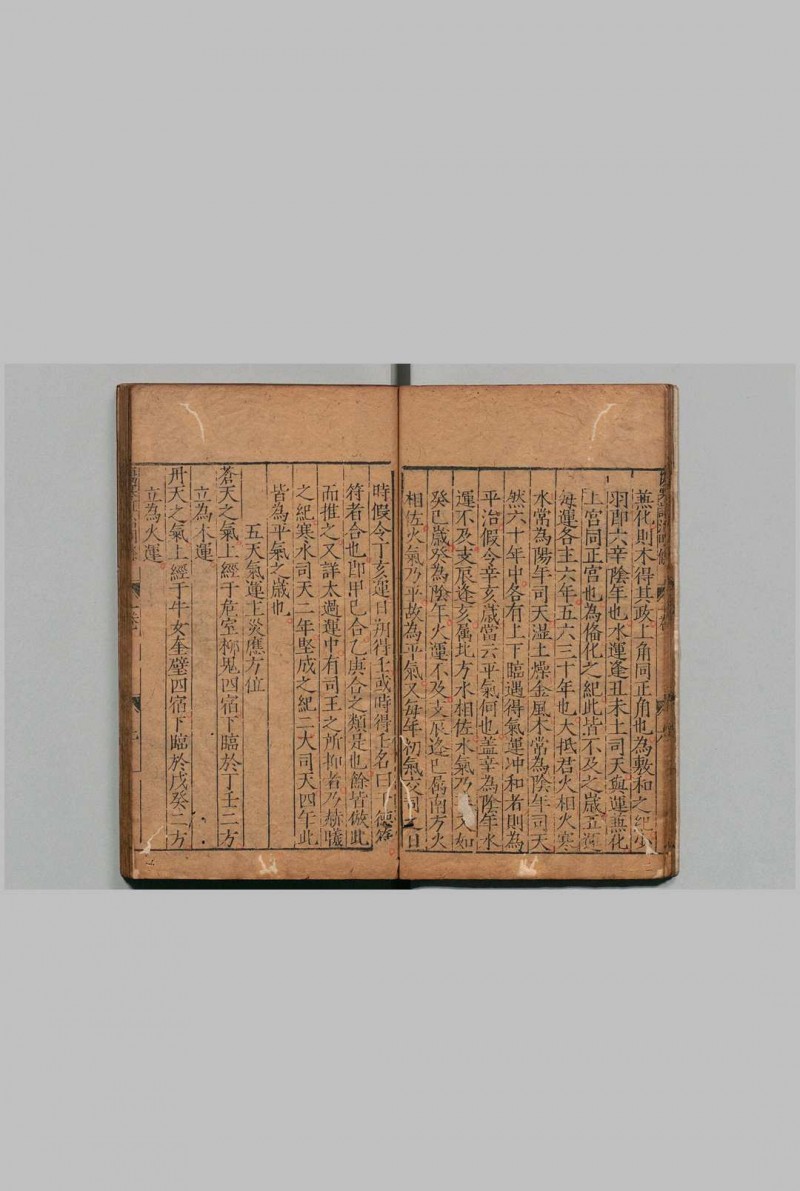 兼化則木得其政上角同正角也為敷和之紀少
羽即六辛陰年也水運逢丑未土司天與運兼化
上宮同正宮也為俻化之紀此皆不及之歲五運
每運各主六年五六三十年也大抵君火相火寒
水常為陽年司天濕土燥金風木常為陰年司天
然六十年中各有上下臨遇得氣運冲和者則為
平治假令辛亥歲當云平氣何也盖辛為陰年水
運不及支辰逢亥属北方水相佐水氣乃平又如
癸巳歲癸為陰年火運不及支辰逢巳属南方火
相佐火氣乃平故為平氣又每年初氣交司之日
時假令丁亥運日朔得壬或時得壬名曰丁德符
符者合也即甲巳合乙庚合之類是也餘皆倣此
而推之又詳太過運中有司王之所抑者乃赫曦
之紀寒水司天二年堅成之紀二火司天四年此
皆為平氣之歲也
五天氣運主災應方位
蒼天之氣上經于危室柳鬼四宿下臨於丁壬二方
立為木運
丹天之氣上經于牛女奎壁四宿下臨於戊癸二方
立為火運